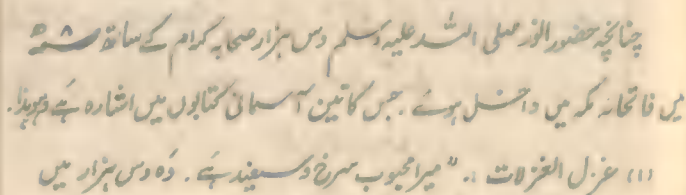 چنانچہ حضور انور صلی اللہ علیہ وسلم دس ہزار صحابہ کرام کے ساتھ ۸ھ
میں فاتحانہ مکہ میں داخل ہوئے۔ جس کا تین آسمانی کتابوں میں اشارہ ہے وہوہذا۔
(۱) غزل الغزلات :۔ "میرا محبوب سرخ و سفید ہے۔ وہ دس ہزار میں